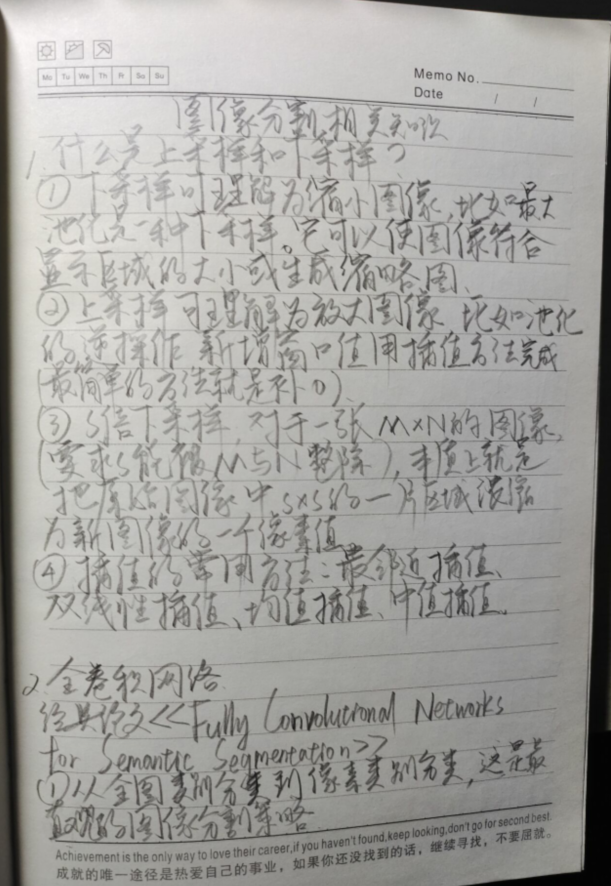 Mo Tu We Th Fr Sa Su
Memo No.
Date / /
图像分割相关知识
1. 什么是上采样和下采样?
① 下采样可理解为缩小图像,比如最大
池化是一种下采样。它可以使图像符合
显示区域的大小或生成缩略图、
② 上采样可理解为放大图像 比如池化
的逆操作 新增窗口值用插值方法完成
(最简单的方法就是补0)、
③ S倍下采样 对于一张M×N的图像,
(要求S能被M与N整除),本质上就是
把原始图像中S×S的一片区域浓缩
为新图像的一个像素值
④ 插值的常用方法:最邻近插值、
双线性插值、均值插值、中值插值、
2. 全卷积网络
经典论文<<Fully Convolutional Networks
for Semantic Segmentation>>
① 从全图类别分类到像素类别分类,这是最
直观的图像分割策略
Achievement is the only way to love their career,if you haven't found,keep looking,don't go for second best.
成就的唯一途径是热爱自己的事业,如果你还没找到的话,继续寻找,不要屈就。